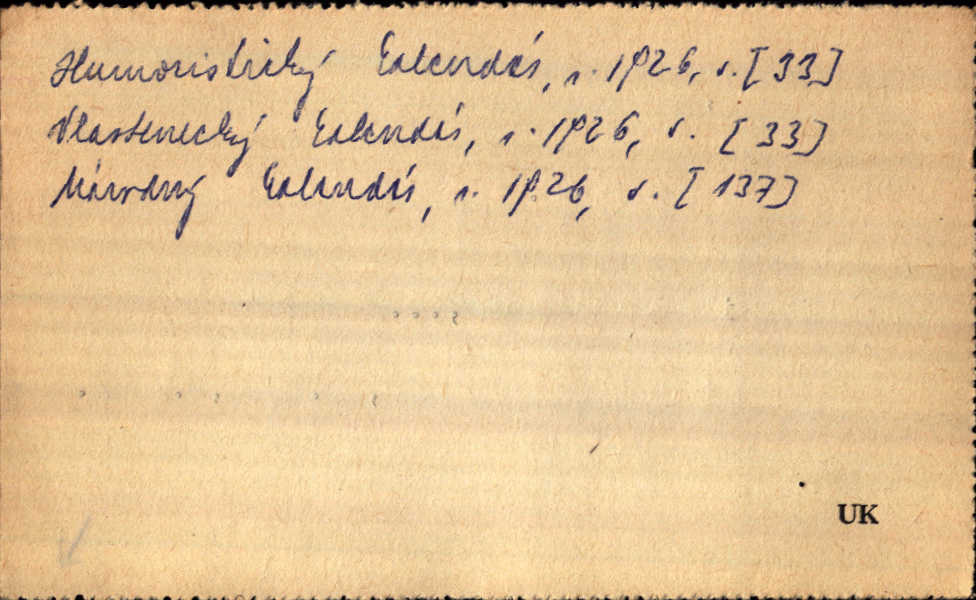 Humoristický kalendár, r. 1926, s. [33]
Vlastenecký kalendár, r. 1926, s. [33]
Národný kalendár, r. 1926, s. [137]
UK